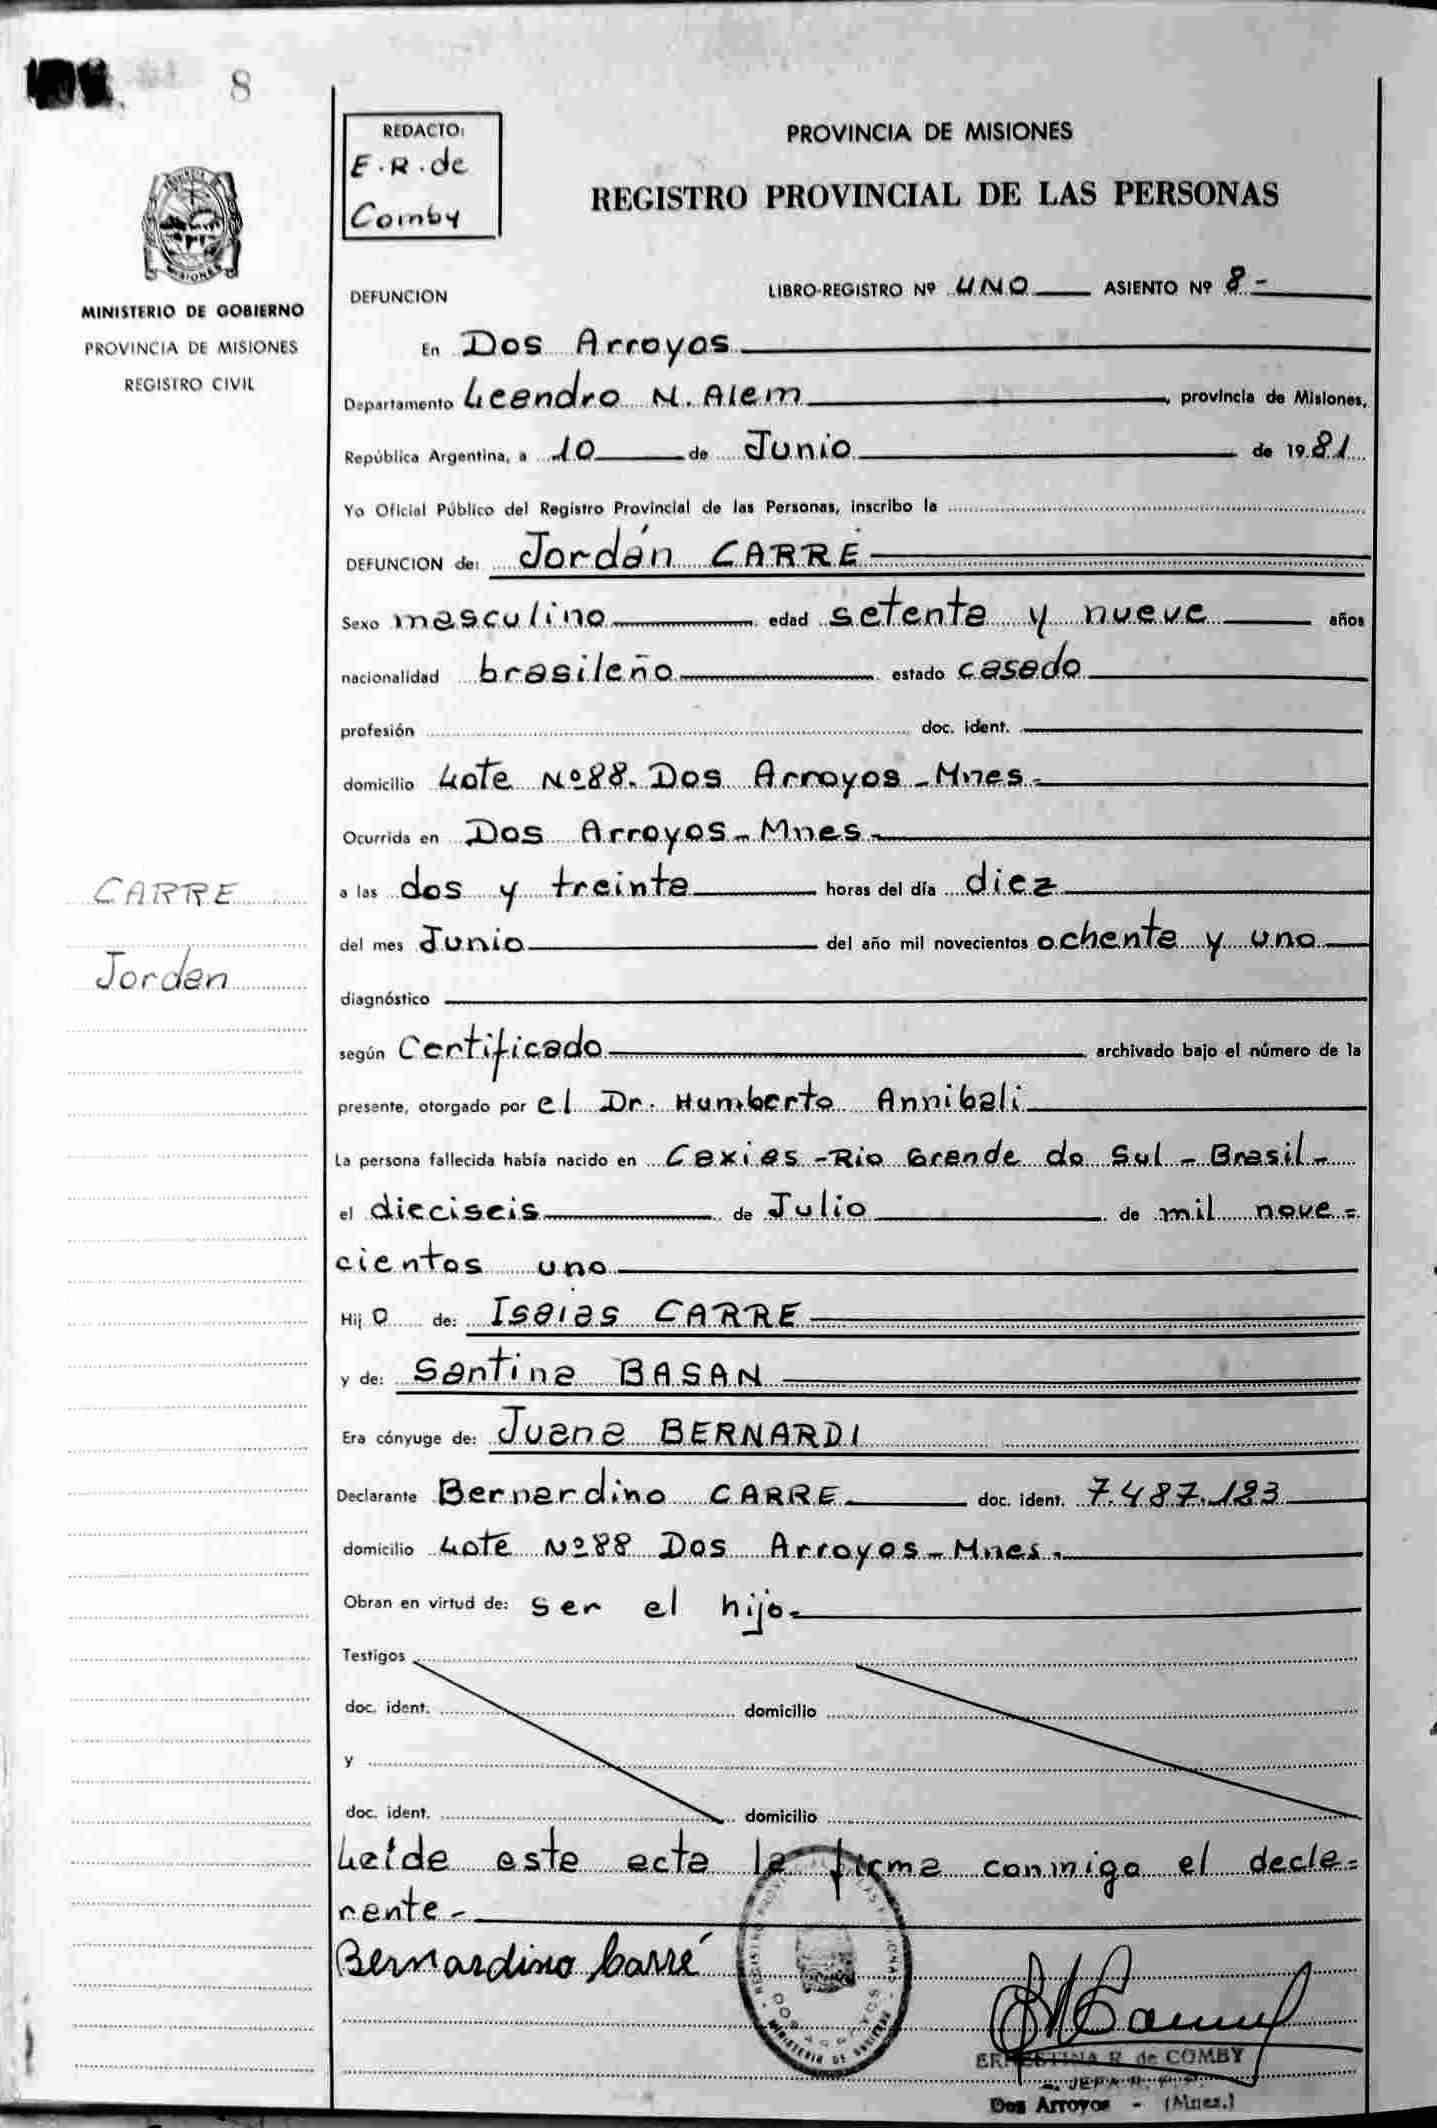 8
REDACTO:
E.R.de
Comby
PROVINCIA DE MISIONES
REGISTRO PROVINCIAL DE LAS PERSONAS
MINISTERIO DE GOBIERNO
PROVINCIA DE MISIONES
REGISTRO CIVIL
DEFUNCION
LIBRO-REGISTRO Nº UNO ASIENTO Nº 8-
En Dos Arroyos
Departamento Leandro N. Alem, provincia de Misiones,
República Argentina, a 10 de Junio de 1981
Yo Oficial Público del Registro Provincial de las Personas, inscribo la
DEFUNCION de: Jordán CARRÉ
Sexo masculino edad setenta y nueve años
nacionalidad brasileño estado casado
profesión doc. ident.
domicilio Lote Nº88. Dos Arroyos-Mnes-
Ocurrida en Dos Arroyos-Mnes-
CARRE
a las dos y treinta horas del día diez
del mes Junio del año mil novecientos ochenta y uno
Jordan
diagnóstico
según Certificado archivado bajo el número de la
presente, otorgado por el Dr. Humberto Annibali
La persona fallecida había nacido en Caxias-Rio Grande do Sul-Brasil-
el dieciseis de Julio de mil nove=
cientos uno
Hijo de: Isaias CARRE
y de: Santina BASAN
Era cónyuge de: Juana BERNARDI
Declarante Bernardino CARRE doc. ident. 7.487.193
domicilio Lote Nº88 Dos Arroyos-Mnes-
Obran en virtud de: ser el hijo-
Testigos
doc. ident. domicilio
y
doc. ident. domicilio
Leída este acta la firma conmigo el decla=
rante-
Bernardino Carré
MINISTERIO DE GOBIERNO
DOS ARROYOS
ERNESTINA R. de COMBY
JEFA R. P. P.
Dos Arroyos - (Mnes.)